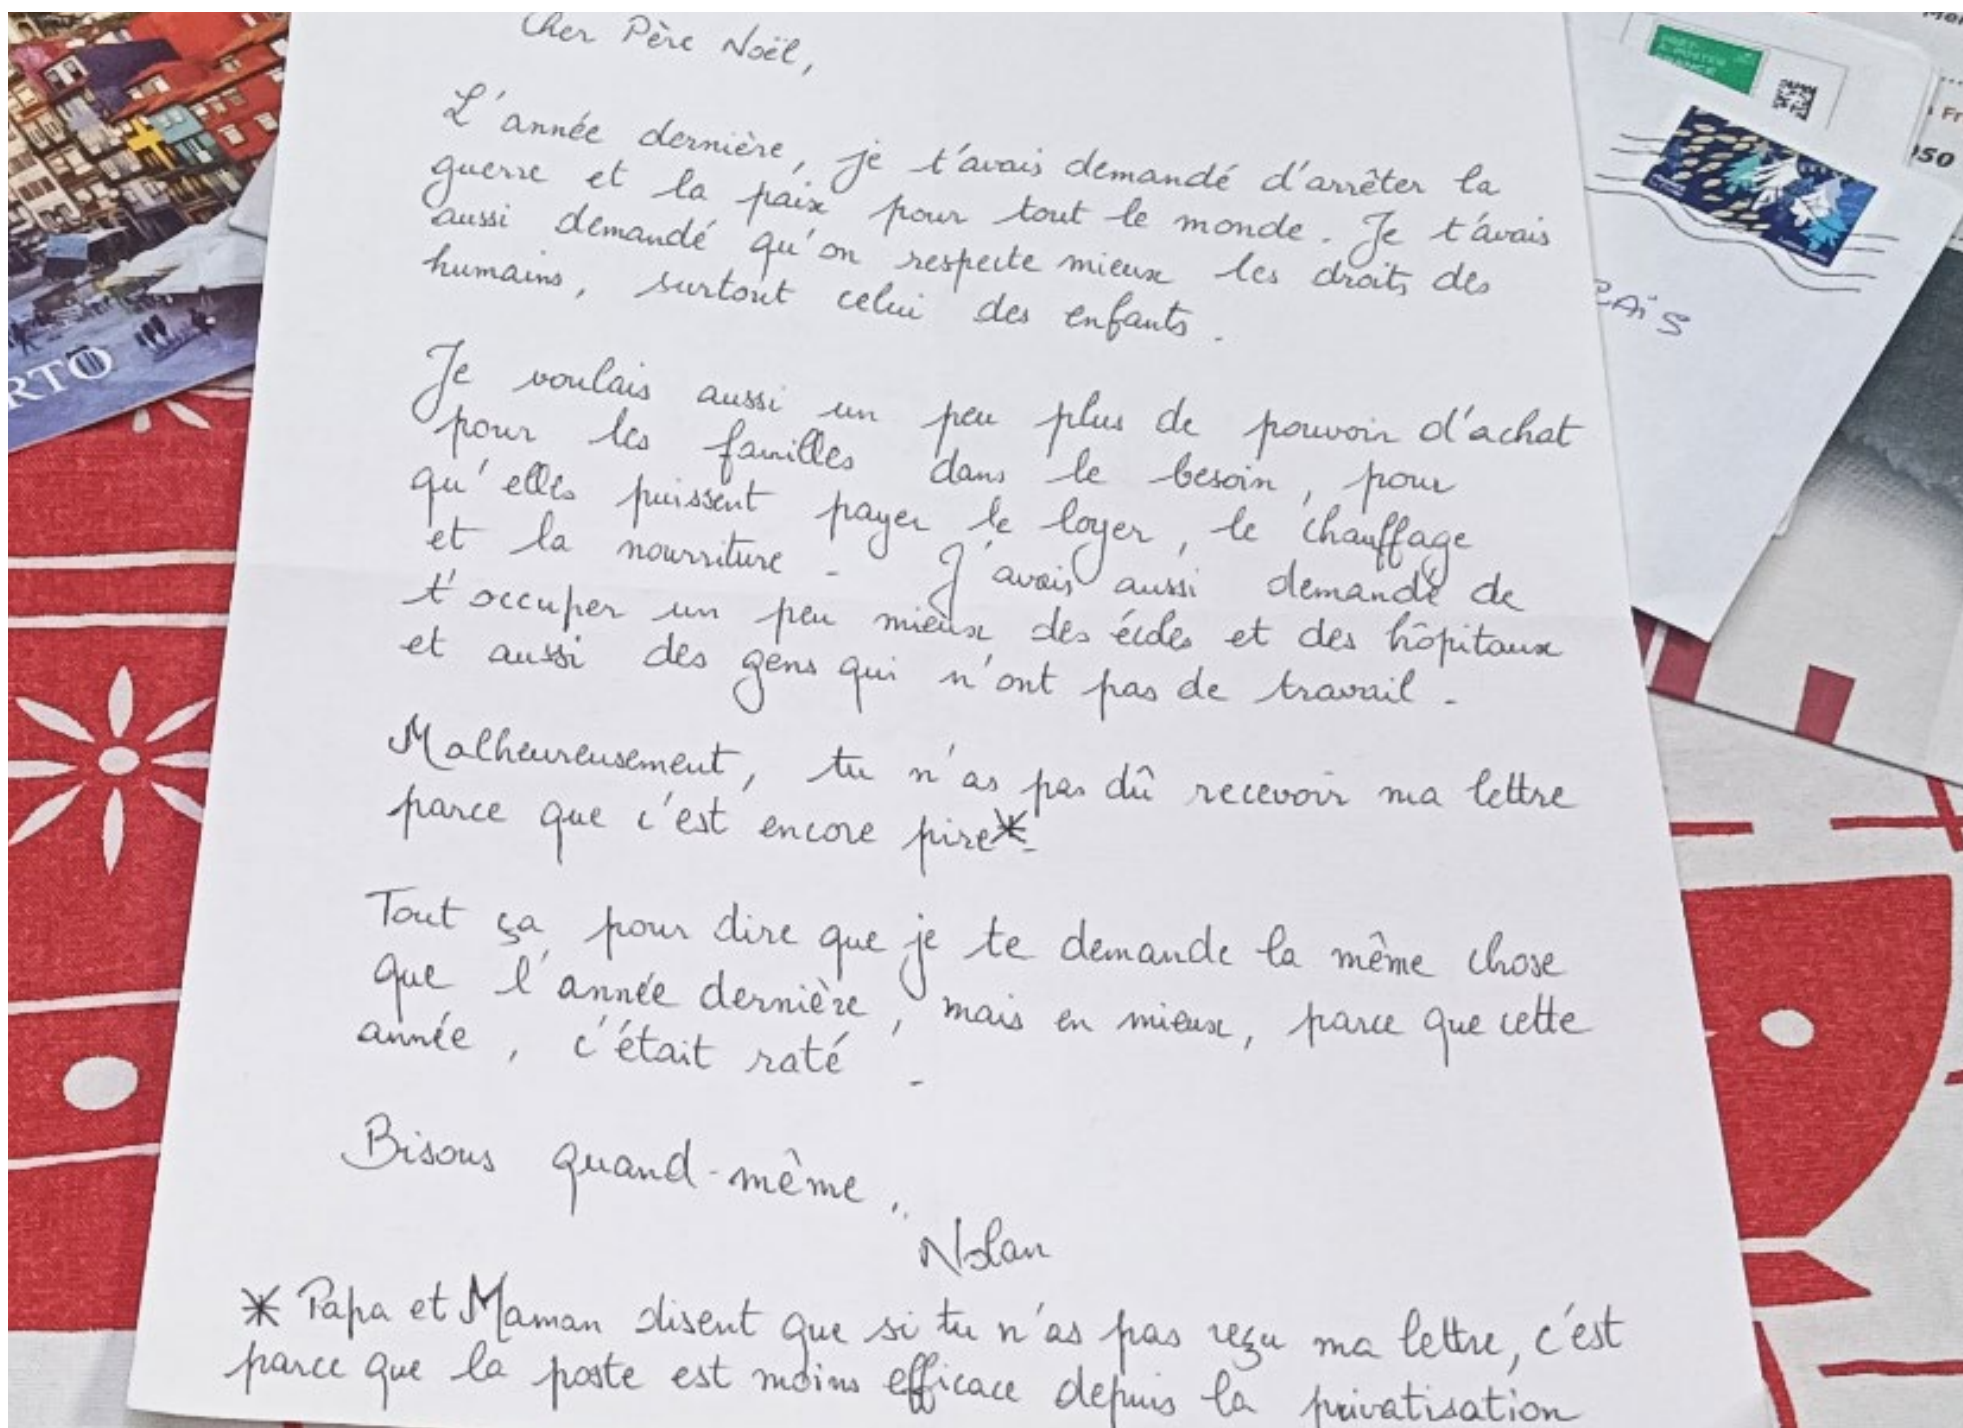 Cher Père Noël,
L'année dernière, je t'avais demandé d'arrêter la
guerre et la paix pour tout le monde. Je t'avais
aussi demandé qu'on respecte mieux les droits des
humains, surtout celui des enfants.
Je voulais aussi un peu plus de pouvoir d'achat
pour les familles dans le besoin, pour
qu'elles puissent payer le loyer, le chauffage
et la nourriture. J'avais aussi demandé de
t'occuper un peu mieux des écoles et des hôpitaux
et aussi des gens qui n'ont pas de travail.
Malheureusement, tu n'as pas dû recevoir ma lettre
parce que c'est encore pire*.
Tout ça pour dire que je te demande la même chose
que l'année dernière, mais en mieux, parce que cette
année, c'était raté.
Bisous quand-même,
Nolan
* Papa et Maman disent que si tu n'as pas reçu ma lettre, c'est
parce que la poste est moins efficace depuis la privatisation
RTO
RAÏS
Fr
50